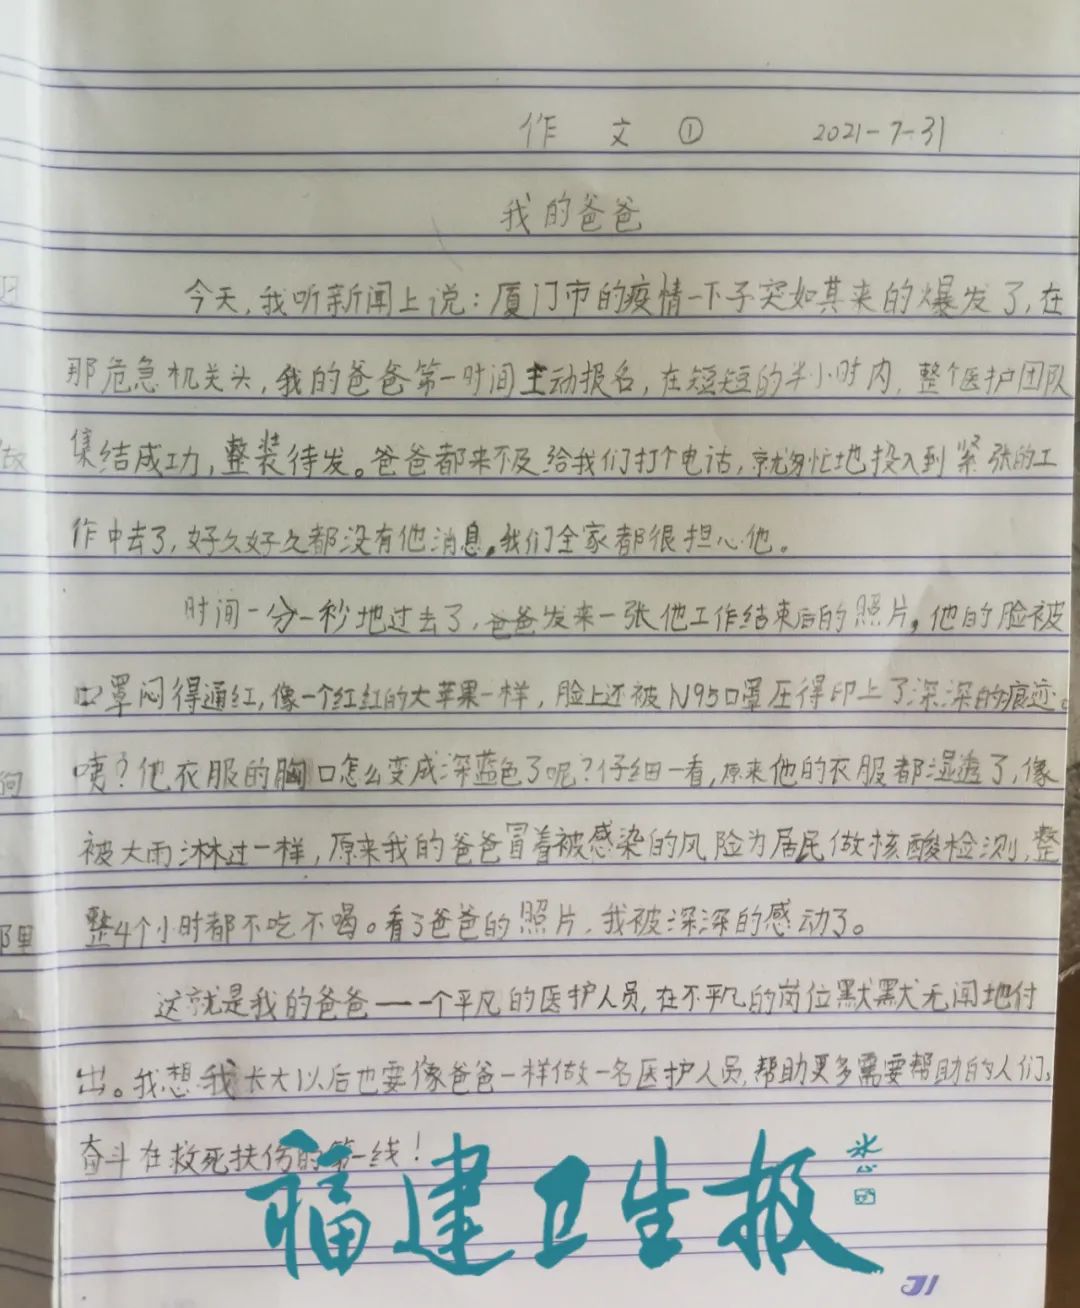 作 文 ① 2021-7-31
我的爸爸
今天,我听新闻上说:厦门市的疫情一下子突如其来的爆发了,在
那危急机关头,我的爸爸第一时间主动报名,在短短的半小时内,整个医护团队
集结成功,整装待发。爸爸都来不及给我们打个电话,就匆忙地投入到紧张的工
作中去了,好久好久都没有他消息。我们全家都很担心他。
时间一分一秒地过去了,爸爸发来一张他工作结束后的照片,他的脸被
口罩闷得通红,像一个红红的大苹果一样,脸上还被N95口罩压得印上了深深的痕迹。
咦?他衣服的胸口怎么变成深蓝色了呢?仔细一看,原来他的衣服都湿透了,像
被大雨淋过一样,原来我的爸爸冒着被感染的风险为居民做核酸检测,整
整4个小时都不吃不喝。看了爸爸的照片,我被深深的感动了。
这就是我的爸爸——一个平凡的医护人员,在不平凡的岗位默默无闻地付
出。我想我长大以后也要像爸爸一样做一名医护人员,帮助更多需要帮助的人们,
奋斗在救死扶伤的第一线!
福建卫生报
冰心
J1
归
做
狗
那里